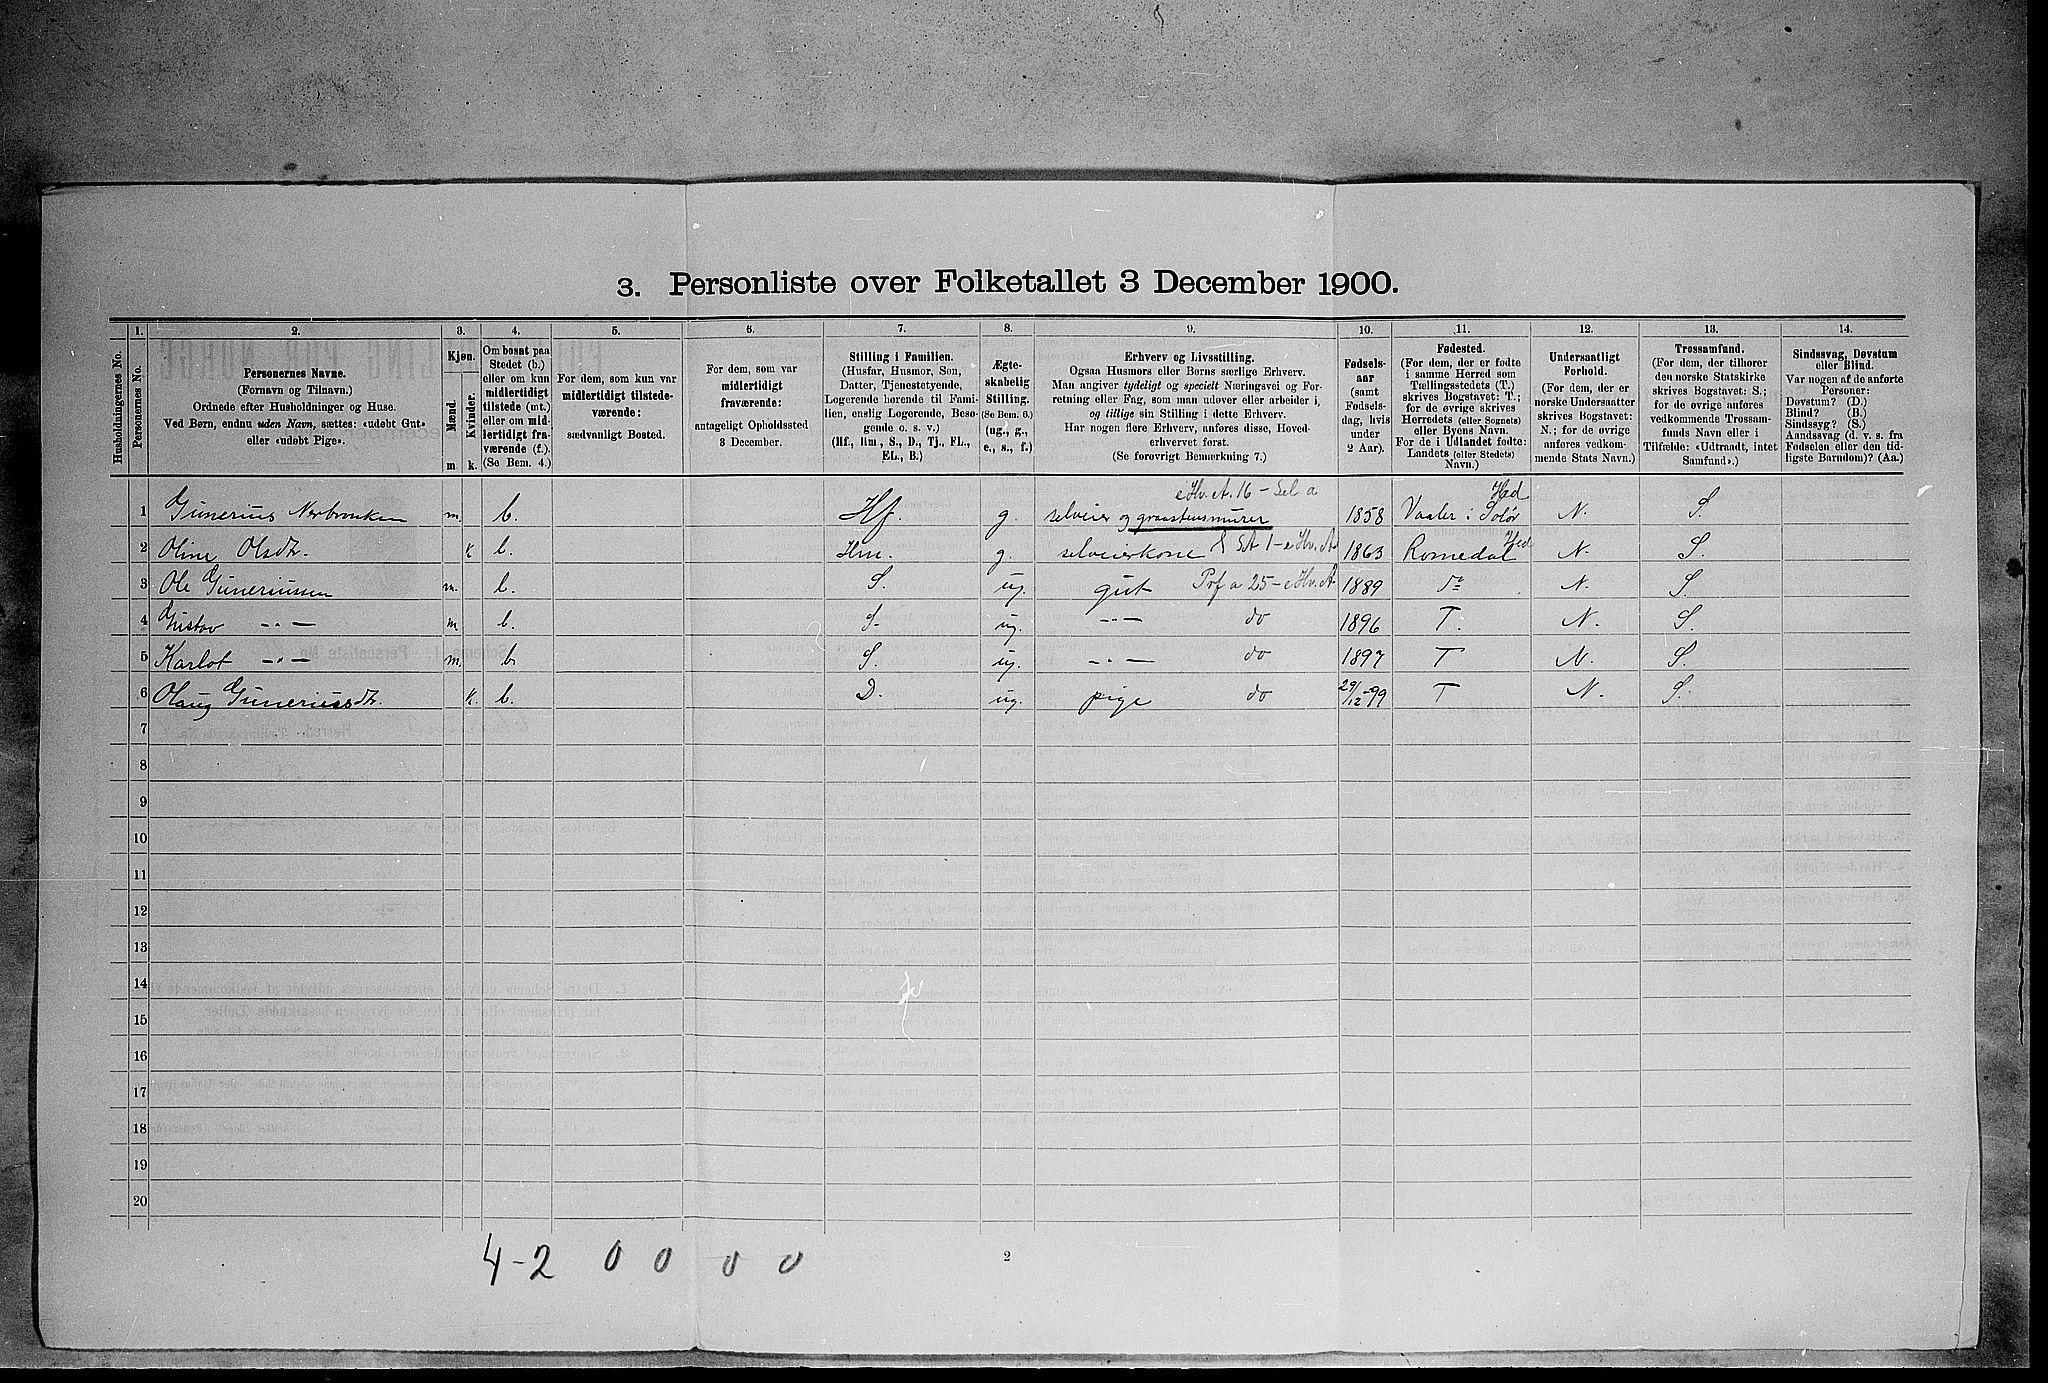 3. Personliste over Folketallet 3 December 1900.
1. 2. 3. 4. 5. 6. 7. 8. 9. 10. 11. 12. 13. 14.
Husholdningernes No.
Personernes No.
Personernes Navne.
(Fornavn og Tilnavn.)
Ordnede efter Husholdninger og Huse.
Ved Børn, endnu uden Navn, sættes: «udøbt Gut»
eller «udøbt Pige».
Kjøn.
Mænd.
Kvinder.
m. k.
Om bosat paa
Stedet (b.)
eller om kun
midlertidigt
tilstede (mt.)
eller om mid-
lertidigt fra-
værende (f.).
(Se Bem. 4.)
For dem, som kun var
midlertidigt tilstede-
værende:
sædvanligt Bosted.
For dem, som var
midlertidigt
fraværende:
antageligt Opholdssted
3 December.
Stilling i Familien.
(Husfar, Husmor, Søn,
Datter, Tjenestetyende,
Logerende hørende til Fami-
lien, enslig Logerende, Besø-
gende o. s. v.)
(Hf., Hm., S., D., Tj., FL.,
EL., B.)
Ægte-
skabelig
Stilling.
(Se Bem. 6.)
(ug., g.,
e., s., f.)
Erhverv og Livsstilling.
Ogsaa Husmors eller Børns særlige Erhverv.
Man angiver tydeligt og specielt Næringsvei og For-
retning eller Fag, som man udøver eller arbeider i,
og tillige sin Stilling i dette Erhverv.
Har nogen flere Erhverv, anføres disse, Hoved-
erhvervet først.
(Se forøvrigt Bemærkning 7.)
Fødsels-
aar
(samt
Fødsels-
dag, hvis
under
2 Aar).
Fødested.
(For dem, der er fødte
i samme Herred som
Tællingsstedets (T.)
skrives Bogstavet: T.;
for de øvrige skrives
Herredets (eller Sognets)
eller Byens Navn.
For de i Udlandet fødte:
Landets (eller Stedets)
Navn.)
Undersaatligt
Forhold.
(For dem, der er
norske Undersaatter
skrives Bogstavet:
N.; for de øvrige
anføres vedkom-
mende Stats Navn.)
Trossamfund.
(For dem, der tilhører
den norske Statskirke
skrives Bogstavet: S.;
for de øvrige anføres
vedkommende Trossam-
funds Navn eller i
Tilfælde: «Udtraadt, intet
Samfund».)
Sindssvag, Døvstum
eller Blind.
Var nogen af de anførte
Personer:
Døvstum? (D.)
Blind? (B.)
Sindssyg? (S.)
Aandssvag (d. v. s. fra
Fødselen eller den tid-
ligste Barndom)? (Aa.)
1 Gunerius Nerbronken m. b. Hf. g. selveier og graastensmurer 1858 Vaaler i Solør Hed N. S.
2 Oline Olsdtr. k b. Hm. g. selveierkone 1863 Romedal Hed N. S.
3 Ole Guneriussen m. b. S. ug. gut 1889 do N. S.
4 Gustav -"- m b. S. ug. -"- do 1896 T. N. S.
5 Karlot -"- m. b. S. ug. -"- do 1897 T N. S.
6 Olaug Guneriusdtr. k. b. D. ug. pige do 29/12-99 T N. S.
7
8
9
10
11
12
13
14
15
16
17
18
19
20
4-2 0 0 0 0
2